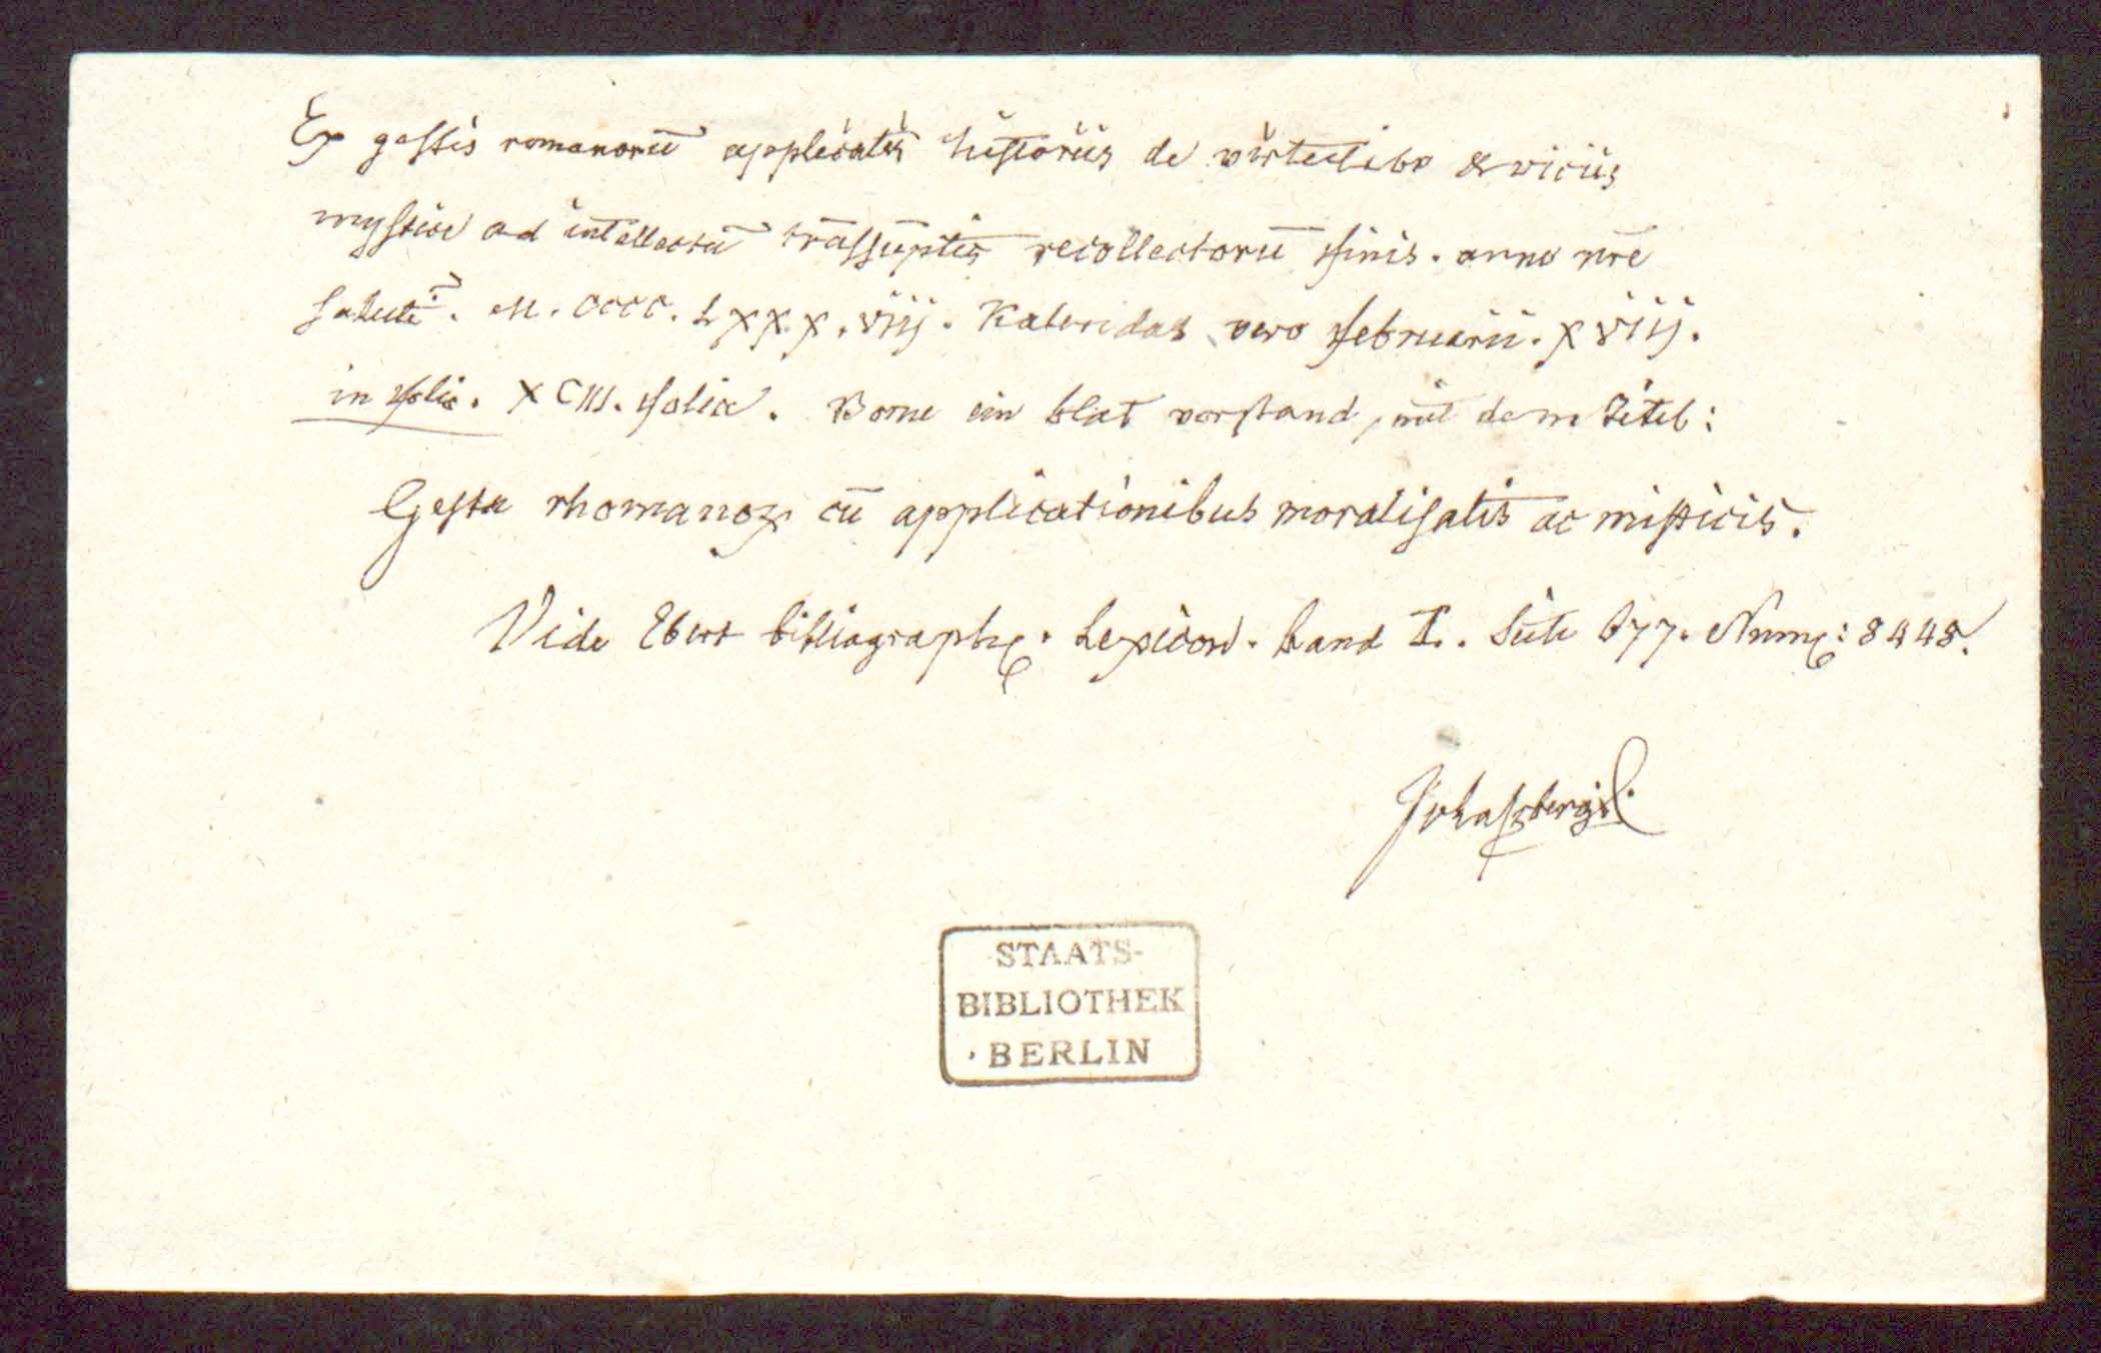 Ex gestis romanorū applicatis historiis de virtutibꝰ & viciis
mystice ad intellectū trāssūptis recollectorū finis. anno nr̄e
salutis. M. CCCC. LXXX. viij. Kalendas vero februarii. XViij.
in folio. XCIII. folia. Vorne ein blat vorstand, mit dem Titel:
Gesta rhomanoꝝ cū applicationibus moralisatis ac misticis.
Vide Ebert bibliograph. Lexicon. band I. Seite 677. Num: 8448.
STAATS-
BIBLIOTHEK
BERLIN